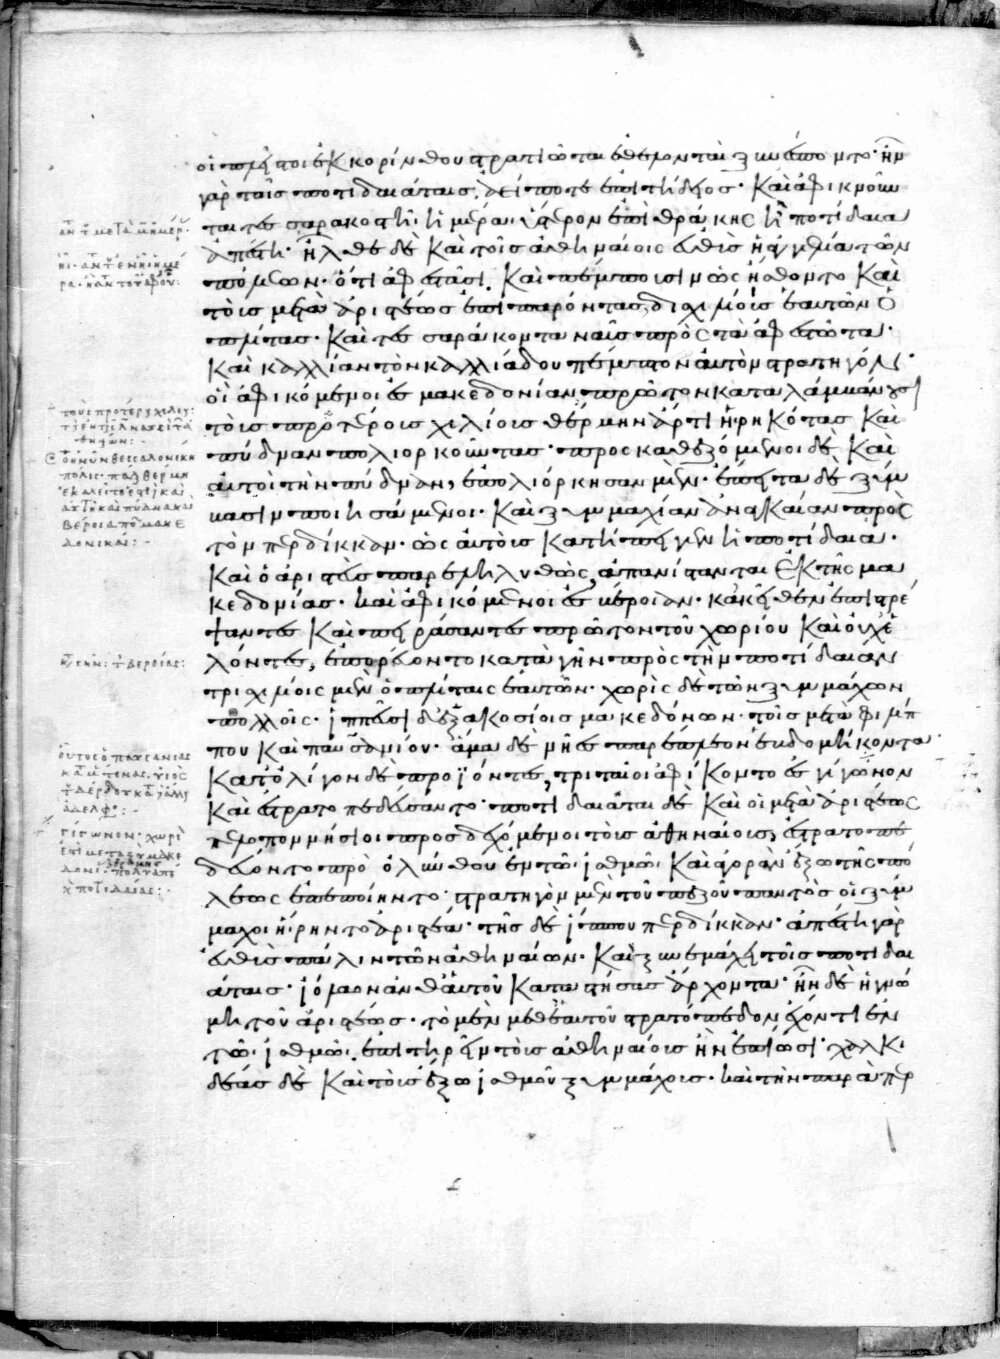 οἱ πλεῖστοι ἐκ κορίνθου στρατιῶται ἐθελονταὶ ξυνέσποντο· ἦν
γὰρ τοῖς ποτιδαιάταις ἀεί ποτε ἐπιτήδειος· καὶ ἀφικνοῦν
ται τεσσαρακοστῆι ἡμέραι ὕστερον ἐπὶ θράκης ἢ ποτίδαια
ἀπέστη· ἦλθε δὲ καὶ τοῖς ἀθηναίοις εὐθὺς ἡ ἀγγελία τῶν
πόλεων· ὅτι ἀφεστᾶσι· καὶ πέμπουσιν ὡς ἤισθοντο καὶ
τοὺς μετὰ ἀριστέως ἐπιπαρόντας, δισχιλίους ἑαυτῶν ὁ
πλίτας· καὶ τεσσαράκοντα ναῦς πρὸς τὰ ἀφεστῶτα·
καὶ καλλίαν τὸν καλλιάδου πέμπτον αὐτὸν στρατηγόν·
οἳ ἀφικόμενοι ἐς μακεδονίαν πρῶτον καταλαμβάνουσι
τοὺς προτέρους χιλίους θέρμην ἄρτι ἠιρηκότας καὶ
πύδναν πολιορκοῦντας· προσκαθεζόμενοι δὲ καὶ
αὐτοὶ τὴν πύδναν, ἐπολιόρκησαν μέν· ἔπειτα δὲ ξύμ
βασιν ποιησάμενοι· καὶ ξυμμαχίαν ἀναγκαίαν πρὸς
τὸν περδίκκαν· ὡς αὐτοὺς κατήπειγεν ἡ ποτίδαια·
καὶ ὁ ἀριστεὺς παρεληλυθώς, ἀπανίστανται ἐκ τῆς μα
κεδονίας· καὶ ἀφικόμενοι ἐς βέροιαν· κἀκεῖθεν ἐπιστρέ
ψαντες καὶ πειράσαντες πρῶτον τοῦ χωρίου καὶ οὐχ ἑ
λόντες, ἐπορεύοντο κατὰ γῆν πρὸς τὴν ποτίδαιαν
τρισχιλίοις μὲν ὁπλίταις ἑαυτῶν· χωρὶς δὲ τῶν ξυμμάχων
πολλοῖς· ἱππεῦσι δὲ ἑξακοσίοις μακεδόνων· τοῖς μετὰ φιλίπ
που καὶ παυσανίου· ἅμα δὲ νῆες παρέπλεον ἑβδομήκοντα·
κατ' ὀλίγον δὲ προϊόντες, τριταῖοι ἀφίκοντο ἐς γίγωνον
καὶ ἐστρατοπεδεύσαντο· ποτιδαιᾶται δὲ καὶ οἱ μετὰ ἀριστέως
πελοποννήσιοι προσδεχόμενοι τοὺς ἀθηναίους, ἐστρατοπε
δεύοντο πρὸ ὀλύνθου ἐν τῶι ἰσθμῶι· καὶ ἀγορὰν ἔξω τῆς πό
λεως ἐπεποίηντο· στρατηγὸν μὲν τοῦ πεζοῦ παντὸς οἱ ξύμ
μαχοι ἤιρηντο ἀριστέα· τῆς δὲ ἵππου περδίκκαν· ἀπέστη γὰρ
εὐθὺς πάλιν τῶν ἀθηναίων· καὶ ξυνεμάχει τοῖς ποτιδαι
άταις· ἰόλαον ἀνθ' αὑτοῦ καταστήσας ἄρχοντα· ἦν δὲ ἡ γνώ
μη τοῦ ἀριστέως· τὸ μὲν μεθ' ἑαυτοῦ στρατόπεδον ἔχοντι ἐν
τῶι ἰσθμῶι, ἐπιτηρεῖν τοὺς ἀθηναίους ἢν ἐπίωσι· χαλκι
δέας δὲ καὶ τοὺς ἔξω ἰσθμοῦ ξυμμάχους· καὶ τὴν παρὰ περ
τοὺς προτέρους χιλίους:
ὅτι ἡ νῦν θεσσαλονίκη
πόλις· πάλαι θέρμη
ἐκαλεῖτο
βέροια πόλις μακε
δονική:
οὗτος ὁ παυσανίας
κατά τινας, υἱὸς
τοῦ δέρδου κατὰ δὲ ἄλλους
ἀδελφός:
γίγωνον· χωρίον
ἐστὶ μεταξὺ μακε
δονίας
ποτιδαίας: